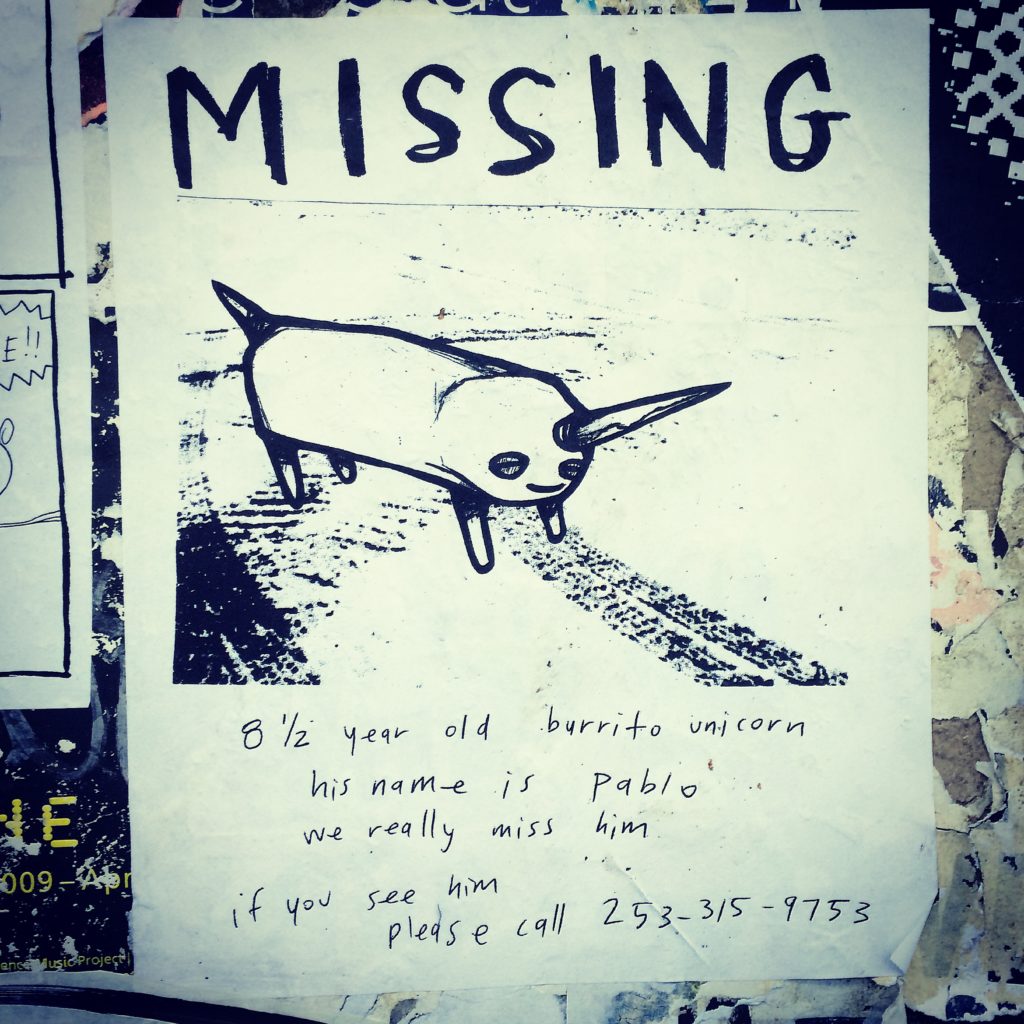 MISSING
E!!
8 1/2 year old burrito unicorn
his name is Pablo
we really miss him
if you see him
please call 253-315-9753
HE
009 – Apr
Music Project